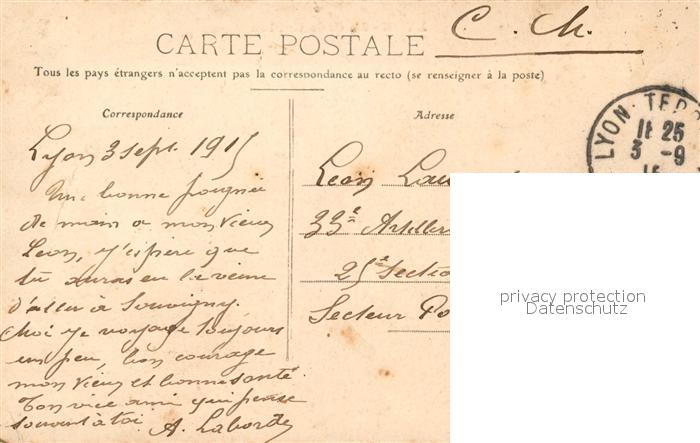 C. M.
CARTE POSTALE
Tous les pays étrangers n'acceptent pas la correspondance au recto (se renseigner à la poste)
Correspondance
Adresse
LYON-TERR
11 25
3 -9
15
Lyon 3 sept. 1915
Une bonne poignée
de main a mon vieux
Leon, j'espère que
tu auras eu la veine
d'aller à Souvigny.
Moi je voyage toujours
un peu, bon courage
mon vieux et bonne santé
Ton vieil ami qui pense
souvent à toi A. Laborde
Leon Lau
33e Artiller
25e Sectio
Secteur Po
privacy protection
Datenschutz